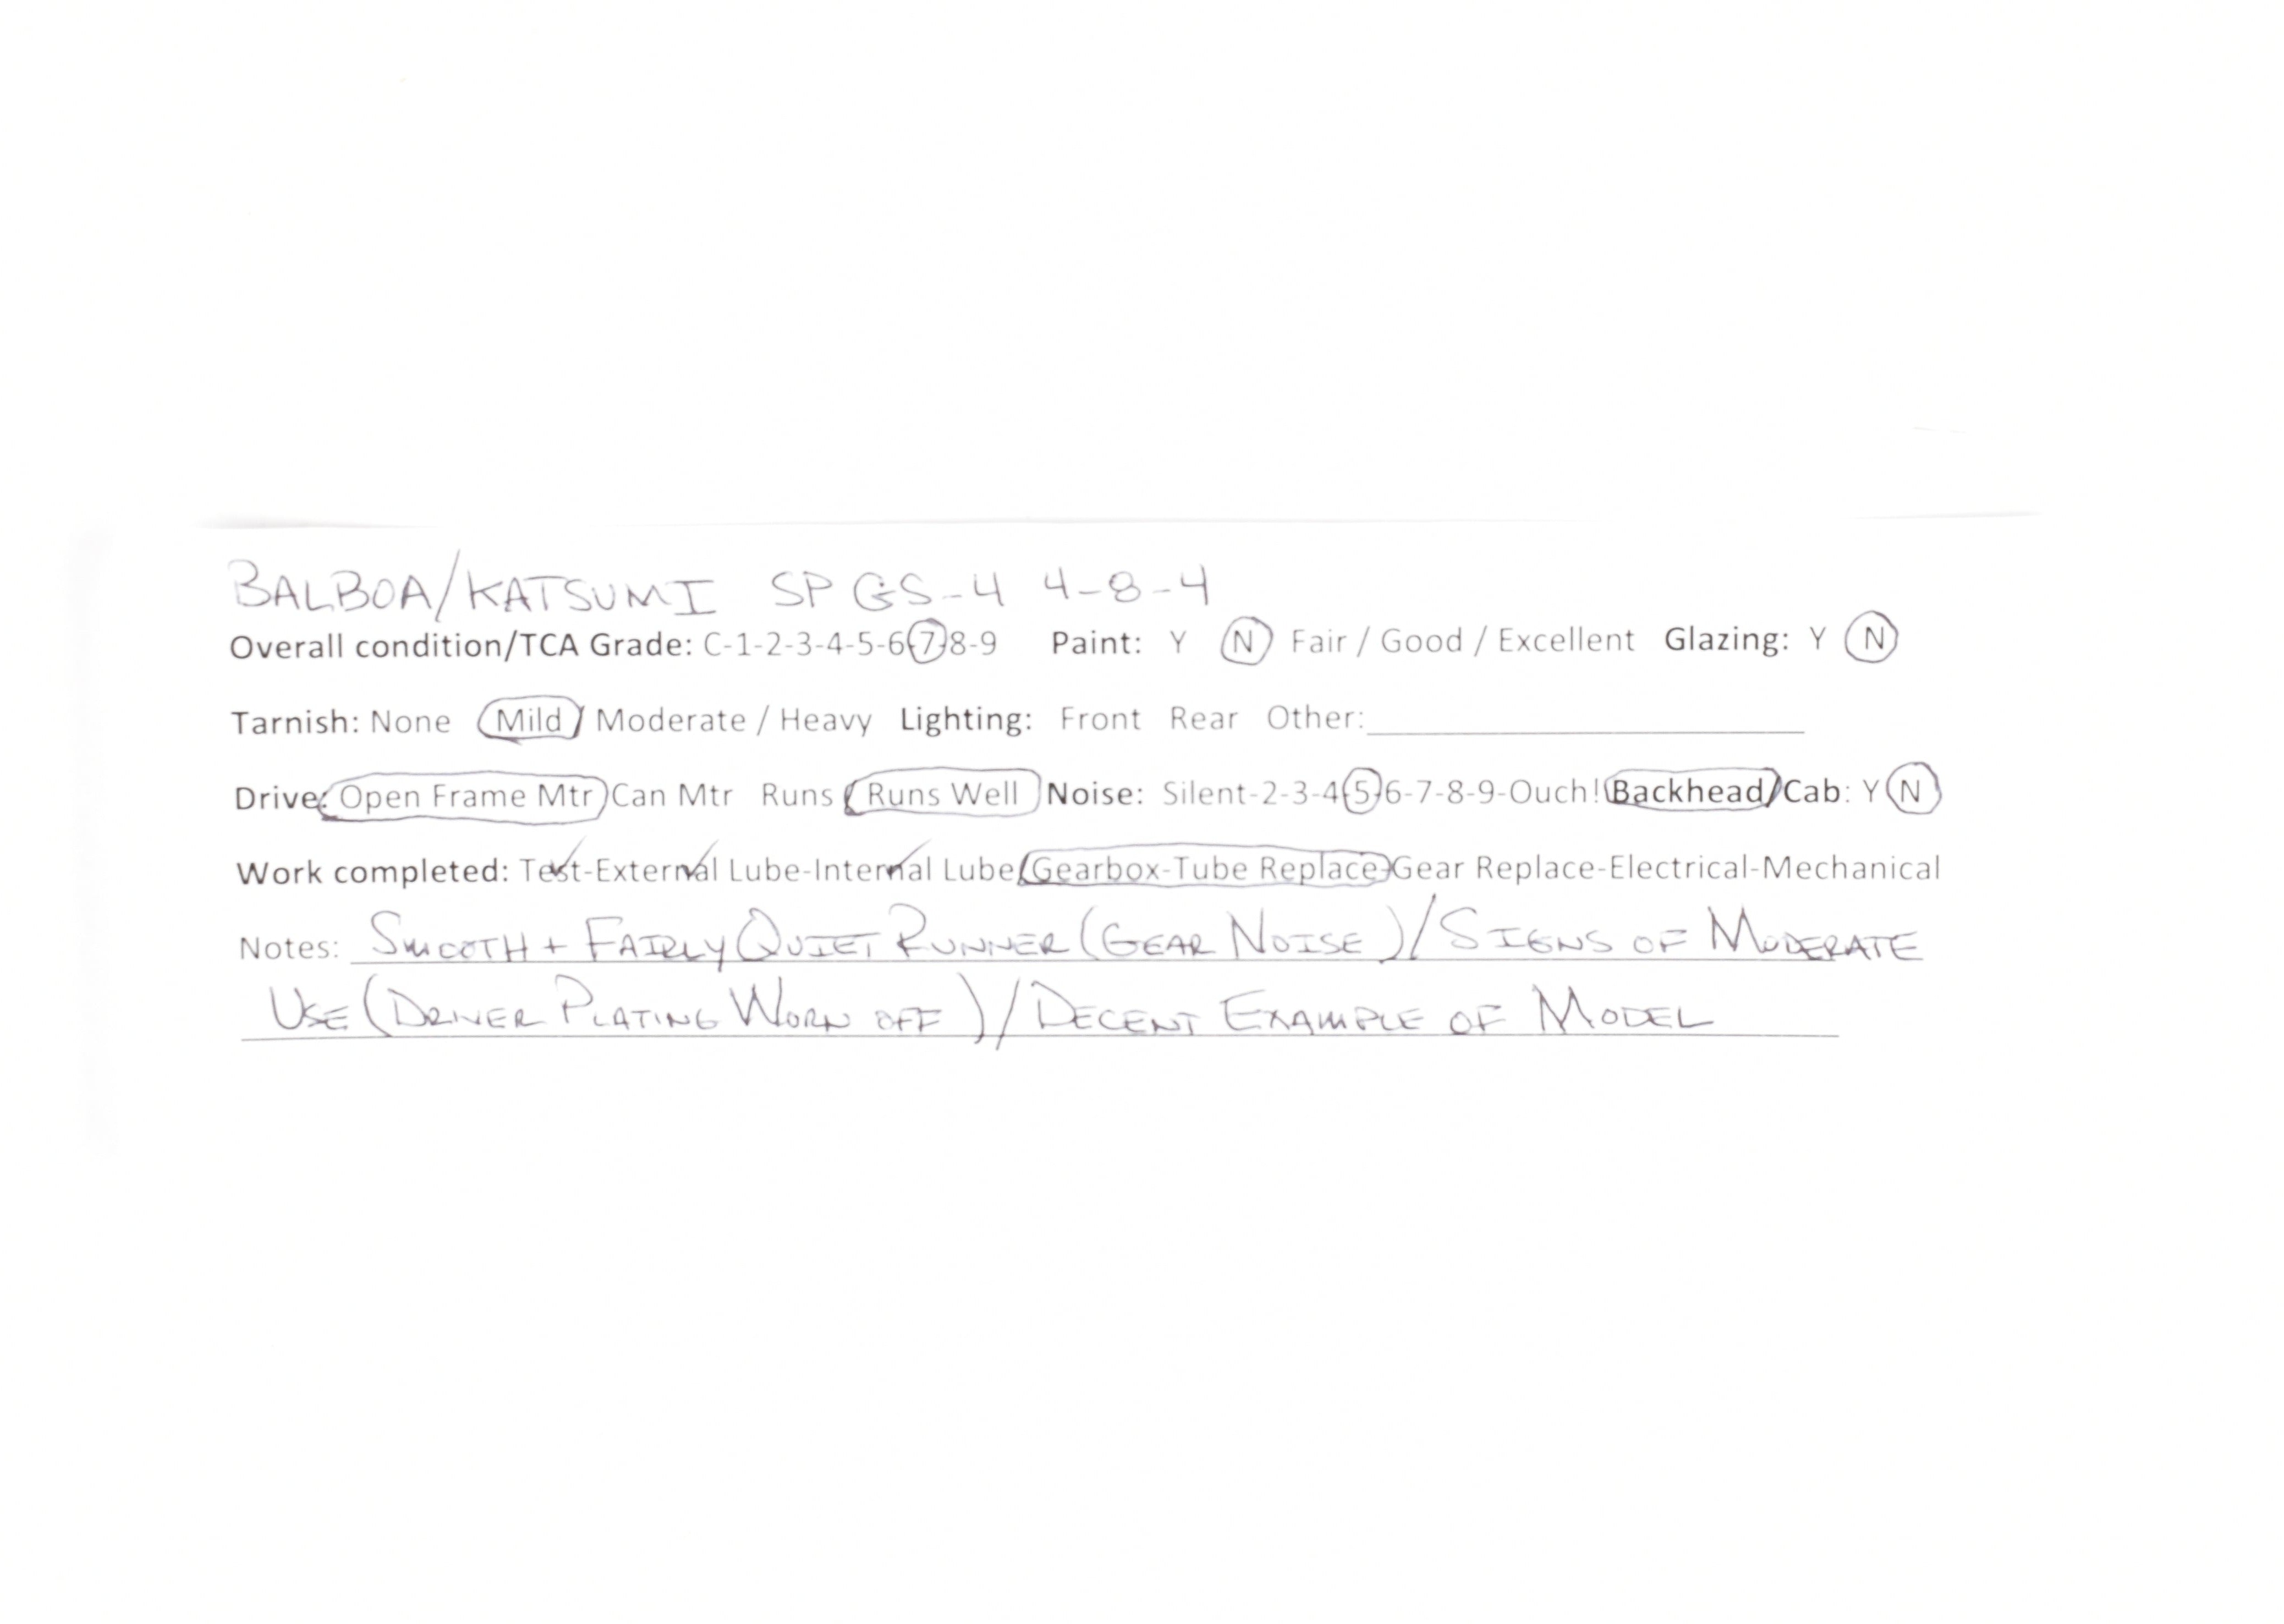 BALBOA/KATSUMI SP GS-4 4-8-4
Overall condition/TCA Grade: C-1-2-3-4-5-6-7-8-9 Paint: Y N Fair / Good / Excellent Glazing: Y N
Tarnish: None Mild / Moderate / Heavy Lighting: Front Rear Other:
Drive: Open Frame Mtr / Can Mtr Runs / Runs Well Noise: Silent-2-3-4-5-6-7-8-9-Ouch! Backhead/Cab: Y N
Work completed: Test-External Lube-Internal Lube-Gearbox-Tube Replace-Gear Replace-Electrical-Mechanical
Notes: SMOOTH + FAIRLY QUIET RUNNER (GEAR NOISE) / SIGNS OF MODERATE
USE (DRIVER PLATING WORN OFF) / DECENT EXAMPLE OF MODEL